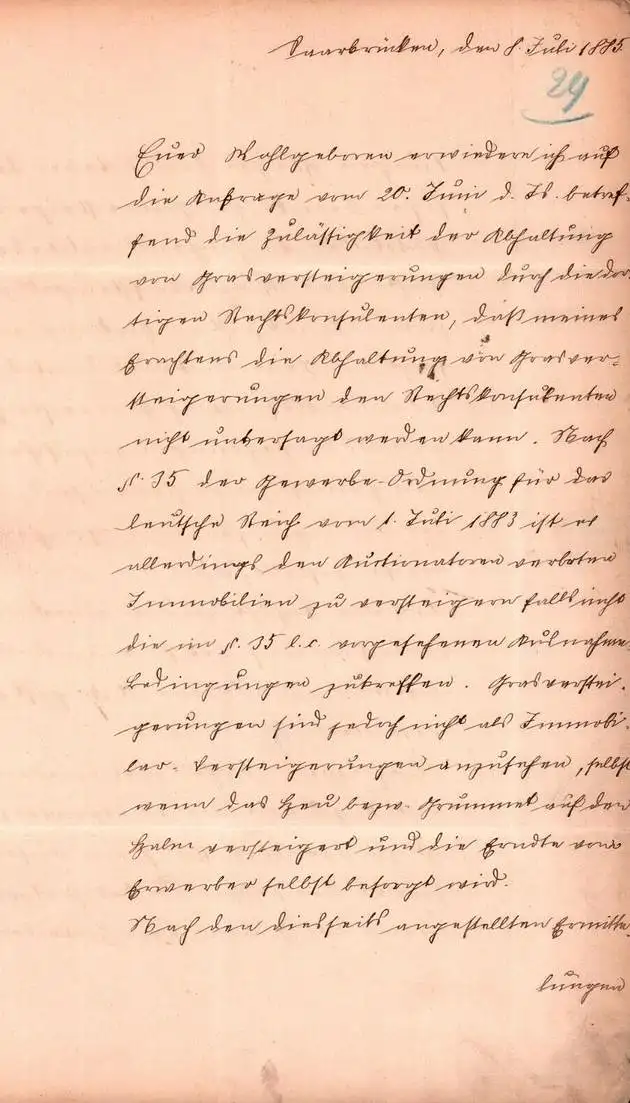 Saarbrücken, den 8. Juli 1885.
24
Euer Wohlgeboren erwiedere ich auf
die Anfrage vom 20. Juni d. Js. betref-
fend die Zulässigkeit der Abhaltung
von Grasversteigerungen durch die dor-
tigen Rechtskonsulenten, daß meines
Erachtens die Abhaltung von Grasver-
steigerungen den Rechtskonsulenten
nicht untersagt werden kann. Nach
§. 35 der Gewerbe-Ordnung für das
deutsche Reich vom 1. Juli 1883 ist es
allerdings den Auctionatoren verboten
Immobilien zu versteigern falls nicht
die im §. 35 l.c. vorgesehenen Ausnahme-
bedingungen zutreffen. Grasverstei-
gerungen sind jedoch nicht als Immobi-
lar-Versteigerungen anzusehen, selbst
wenn das Heu bezw. Grummet auf den
Halm versteigert und die Erndte vom
Erwerber selbst besorgt wird.
Nach den diesseits angestellten Ermitte-
lungen